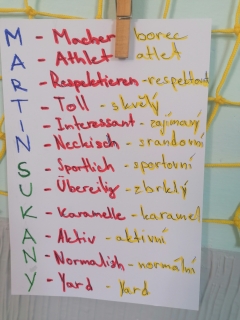 M - Macher - borec
A - Athlet - atlet
R - Respektieren - respektovat
T - Toll - skvělý
I - Interessant - zajímavý
N - Neckisch - srandovní
S - Sportlich - sportovní
U - Übereilig - zbrklý
K - Karamelle - karamel
A - Aktiv - aktivní
N - Normalish - normální
Y - Yard - Yard